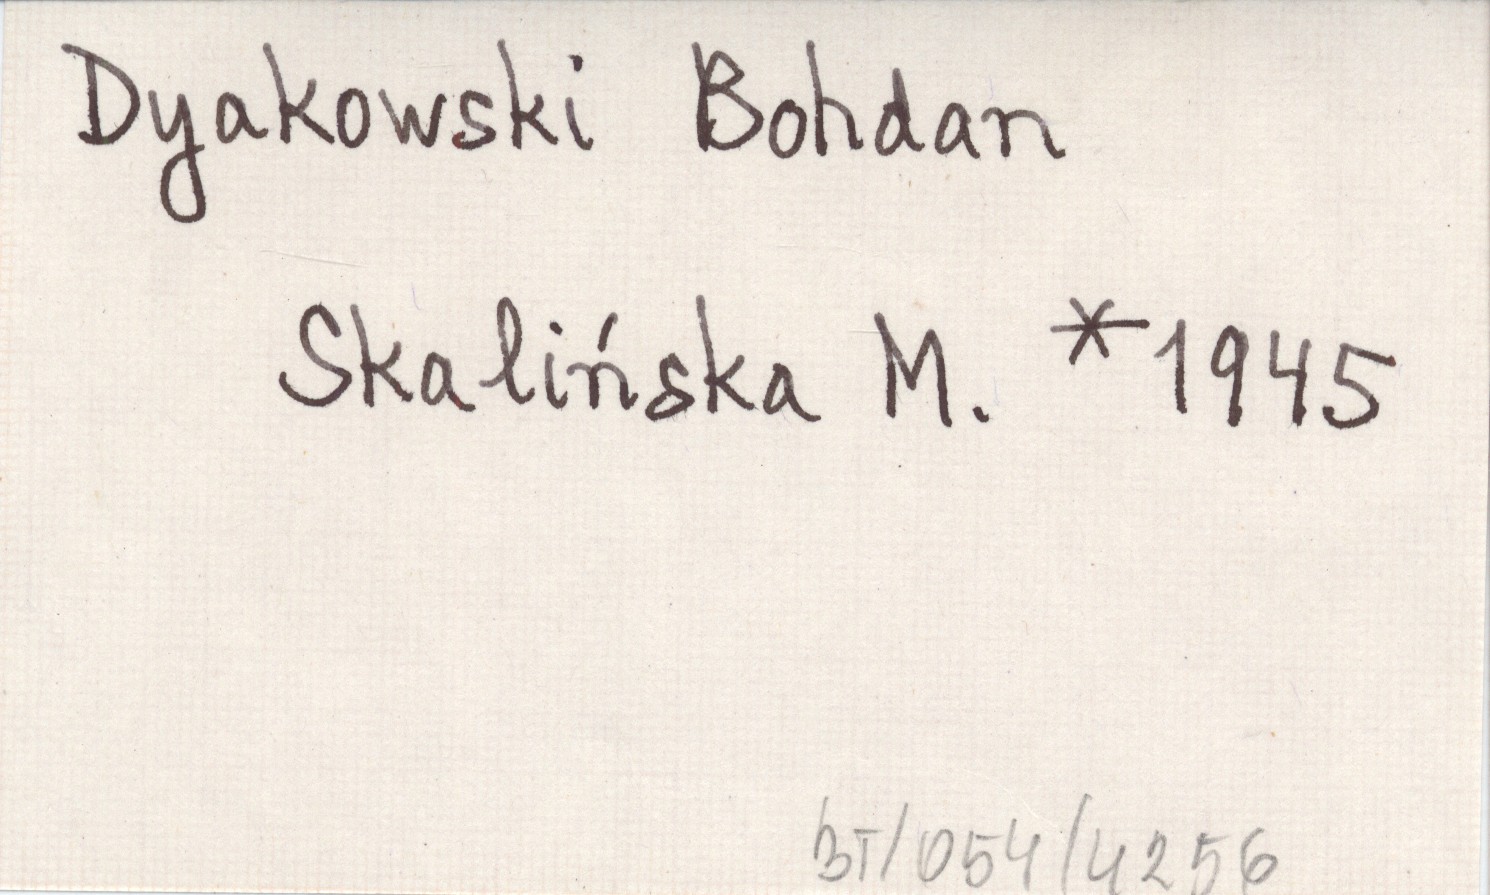 Dyakowski Bohdan
Skalińska M. *1945
BT/054/4256